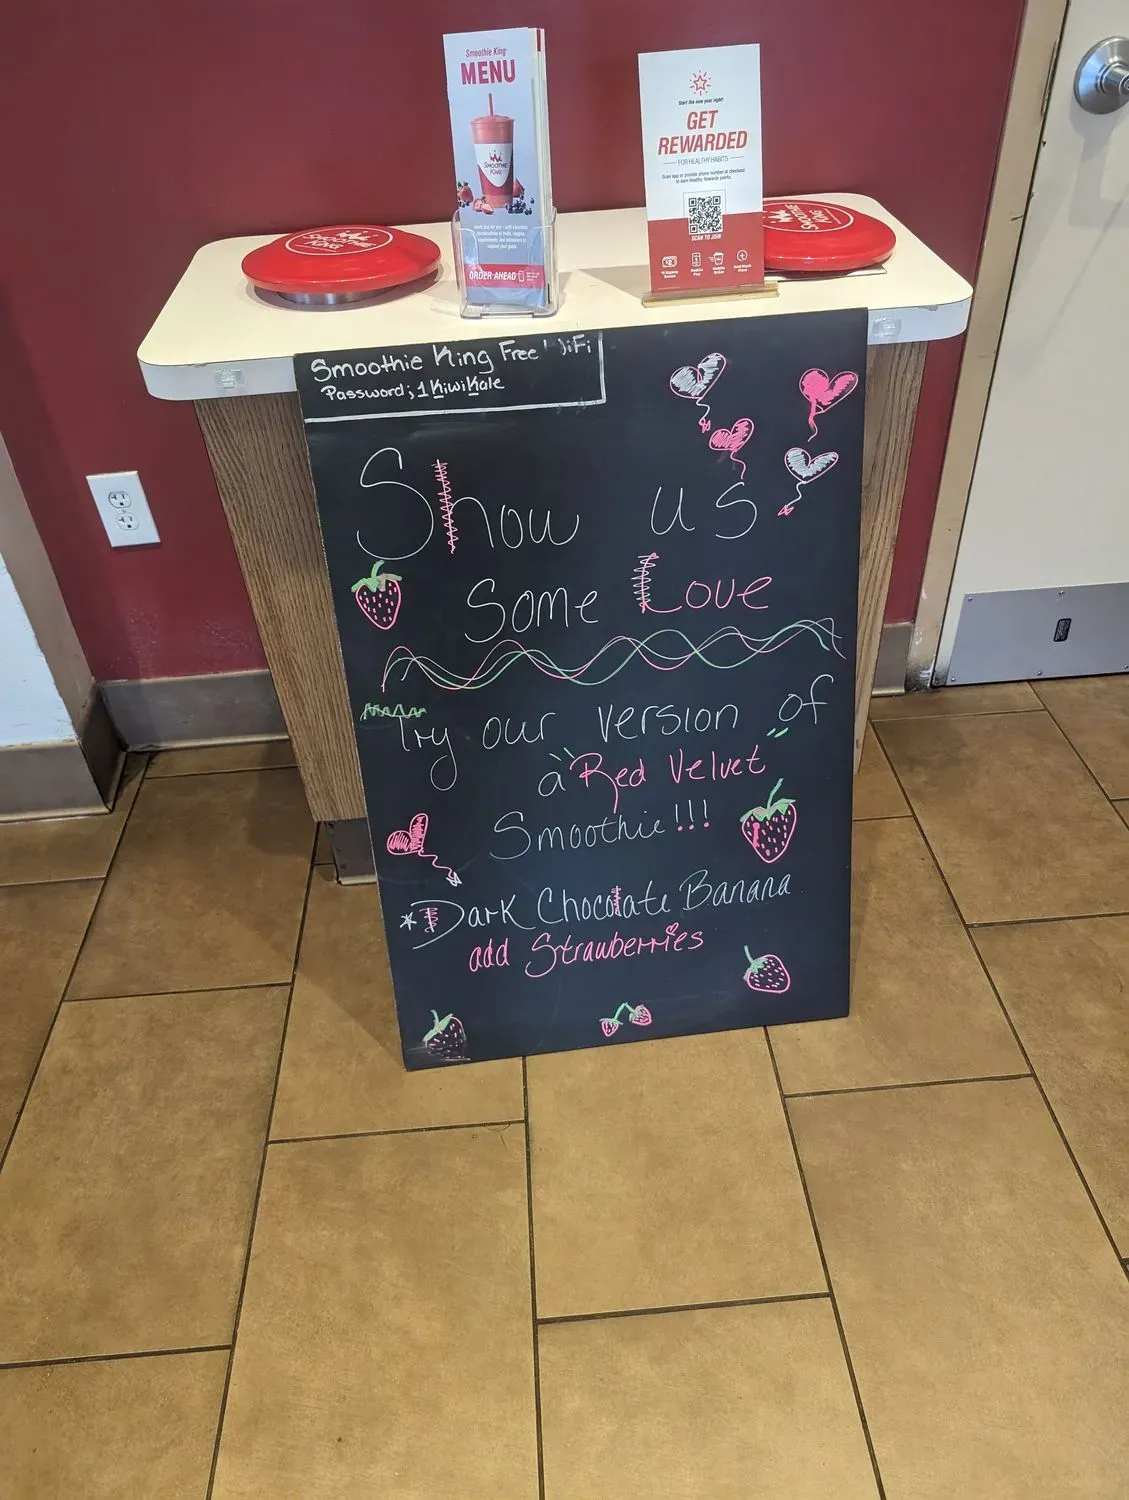 Smoothie King
MENU
SMOOTHIE
KING
ORDER AHEAD
Start the new year right!
GET
REWARDED
FOR HEALTHY HABITS
Scan app or provide phone number at checkout
to earn Healthy Rewards points.
SCAN TO JOIN
SMOOTHIE
KING
SMOOTHIE
KING
Smoothie King Free WiFi
Password; 1KiwiKale
Show us
Some Love
Try our version of
a "Red Velvet"
Smoothie!!!
*Dark Chocolate Banana
add Strawberries